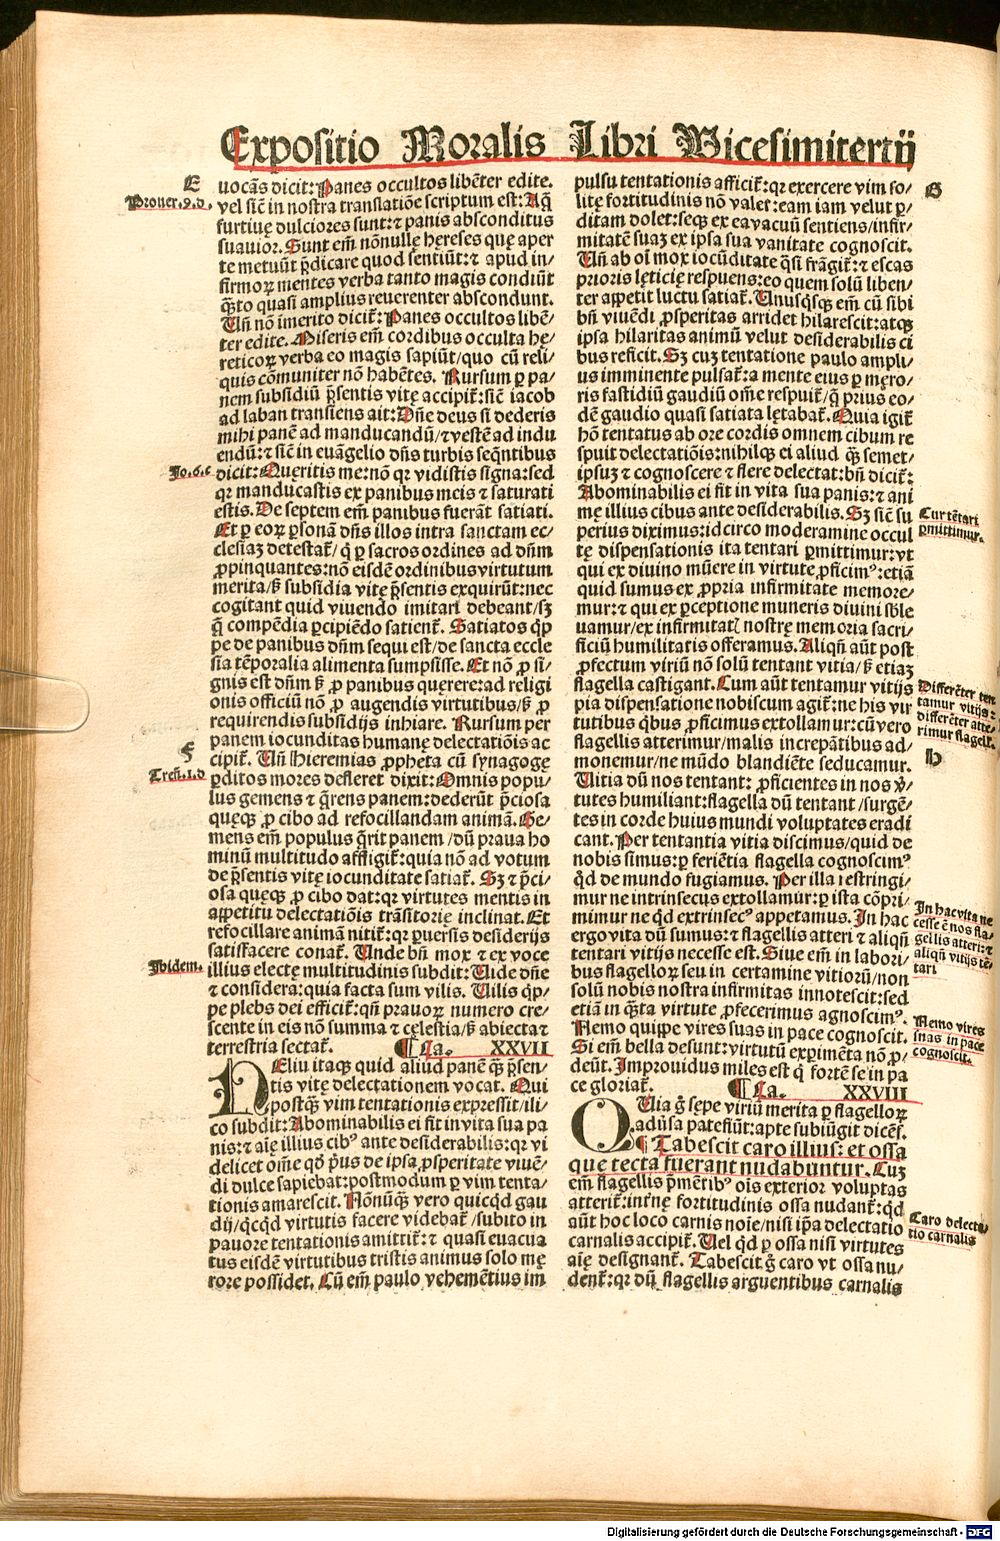 Expositio Moralis Libri Vicesimitertij
E
Prouer.9.d.
uocãs dicit: Panes occultos libẽter edite.
vel sic̃ in nostra translatiõe scriptum est: Aq̃
furtiuę dulciores sunt: ⁊ panis absconditus
suauior. Sunt em̃ nõnullę hęreses quę aper
te metuũt p̃dicare quod sentiũt: ⁊ apud in/
firmoꝝ mentes verba tanto magis condiũt
q̃ꝫto quasi amplius reuerenter abscondunt.
Uñ nõ ĩmerito dicit̃: Panes occultos libẽ/
ter edite. Miseris em̃ cordibus occulta hę/
reticoꝝ verba eo magis sapiũt/quo cũ reli/
quis cõmuniter nõ habẽtes. Rursum ꝑ pa/
nem subsidiũ p̃sentis vitę accipit̃: sic̃ iacob
ad laban transiens ait: Dñe deus si dederis
mihi panẽ ad manducandũ/⁊ vestẽ ad indu
endũ: ⁊ sic̃ in euãgelio dñs turbis seq̃ntibus
Jo.6.c
dicit: Quęritis me: nõ qꝛ vidistis signa: sed
qꝛ manducastis ex panibus meis ⁊ saturati
estis. De septem em̃ panibus fuerãt satiati.
Et ꝑ eoꝝ ꝑsonã dñs illos intra sanctam ec/
clesiaꝫ detestat̃/q̃ ꝑ sacros ordines ad dñm
ꝓpinquantes: nõ eisdẽ ordinibus virtutum
merita/ß subsidia vitę p̃sentis exquirũt: nec
cogitant quid viuendo imitari debeant/sꝫ
q̃ compẽdia ꝑcipiẽdo satient̃. Satiatos q̃p
pe de panibus dñm sequi est/de sancta eccle
sia tẽporalia alimenta sumpsisse. Et nõ ꝓ si/
gnis est dñm ß ꝓ panibus quęrere: ad religi
onis officiũ nõ ꝓ augendis virtutibus/ß ꝓ
requirendis subsidijs inhiare. Rursum per
panem iocunditas humanę delectatiõis ac
F
cipit̃. Uñ Hieremias ꝓpheta cũ synagogę
Treñ.1.d
ꝑditos mores defleret dixit: Omnis popu/
lus gemens ⁊ q̃rens panem: dederũt p̃ciosa
quęqꝫ ꝓ cibo ad refocillandam animã. Ge/
mens em̃ populus q̃rit panem/dũ praua ho
minũ multitudo affligit̃: quia nõ ad votum
de p̃sentis vitę iocunditate satiat̃. Sꝫ ⁊ p̃ci/
osa quęqꝫ ꝓ cibo dat: qꝛ virtutes mentis in
appetitu delectatiõis trãsitorię inclinat. Et
refocillare animã nitit̃: qꝛ ꝑuersis desiderijs
satisfacere conat̃. Unde bñ mox ⁊ ex voce
Ibidem.
illius electę multitudinis subdit: Uide dñe
⁊ considera: quia facta sum vilis. Uilis q̃p/
pe plebs dei efficit̃: qñ prauoꝝ numero cre/
scente in eis nõ summa ⁊ cęlestia/ß abiecta ⁊
terrestria sectat̃. ¶ Ca. XXVII
NEliu itaqꝫ quid aliud panẽ qꝫ p̃sen/
tis vitę delectationem vocat. Qui
postqꝫ vim tentationis expressit/ili/
co subdit: Abominabilis ei fit in vita sua pa
nis: ⁊ aĩę illius cibꝰ ante desiderabilis: qꝛ vi
delicet om̃e qđ pꝛius de ipsa ꝓsperitate viuẽ/
di dulce sapiebat: postmodum ꝑ vim tenta/
tionis amarescit. Nõnũqꝫ vero quicq̃d gau
dij/q̃cq̃d virtutis facere videbat̃/subito in
pauore tentationis amittit̃: ⁊ quasi euacua
tus eisdẽ virtutibus tristis animus solo mę
rore possidet̃. Cũ em̃ paulo vehemẽtius im
pulsu tentationis afficit̃: qꝛ exercere vim so/
G
litę fortitudinis nõ valet: eam iam velut ꝑ/
ditam dolet: seqꝫ ex ea vacuũ sentiens/infir/
mitatẽ suaꝫ ex ipsa sua vanitate cognoscit.
Uñ ab oĩ mox iocũditate q̃si frãgit̃: ⁊ escas
prioris lęticię respuens: eo quem solũ liben/
ter appetit luctu satiat̃. Unusq̃sqꝫ em̃ cũ sibi
bñ viuẽdi ꝓsperitas arridet hilarescit: atqꝫ
ipsa hilaritas animũ velut desiderabilis ci
bus reficit. Sꝫ cuꝫ tentatione paulo ampli/
us imminente pulsat̃: a mente eius ꝑ męro/
ris fastidiũ gaudiũ om̃e respuit̃/q̃ prius eo/
dẽ gaudio quasi satiata lętabat̃. Quia igit̃
hõ tentatus ab ore cordis omnem cibum re
spuit delectatiõis: nihilqꝫ ei aliud qꝫ semet/
ipsuꝫ ⁊ cognoscere ⁊ flere delectat: bñ dicit̃:
Abominabilis ei fit in vita sua panis: ⁊ ani
mę illius cibus ante desiderabilis. Sꝫ sic̃ su
Cur tẽtari
ꝑmittimur.
perius diximus: idcirco moderamine occul
tę dispensationis ita tentari ꝑmittimur: vt
qui ex diuino mũere in virtute ꝓficimꝰ: etiã
quid sumus ex ꝓpria infirmitate memore/
mur: ⁊ qui ex ꝑceptione muneris diuini sb̃le
uamur/ex infirmitatꝭ nostrę memoria sacri/
ficiũ humilitatis offeramus. Aliqñ aũt post
ꝓfectum viriũ nõ solũ tentant vitia/ß etiaꝫ
flagella castigant. Cum aũt tentamur vitijs
Differẽter ten
tamur vitijs:
differẽter atte/
rimur flagell̃.
pia dispensatione nobiscum agit̃: ne his vir
tutibus q̃bus ꝓficimus extollamur: cũ vero
flagellis atterimur/malis increpãtibus ad/
H
monemur/ne mũdo blandiẽte seducamur.
Uitia dũ nos tentant: ꝓficientes in nos v̓/
tutes humiliant: flagella dũ tentant/surgẽ/
tes in corde huius mundi voluptates eradi
cant. Per tentantia vitia discimus/quid de
nobis simus: ꝑ feriẽtia flagella cognoscimꝰ
q̃d de mundo fugiamus. Per illa restringi/
mur ne intrinsecus extollamur: ꝑ ista cõpri/
In hac vita ne
cesse ẽ nos fla/
gellis atteri: ⁊
aliqñ vitijs tẽ/
tari
mimur ne q̃d extrinsecꝰ appetamus. In hac
ergo vita dũ sumus: ⁊ flagellis atteri ⁊ aliqñ
tentari vitijs necesse est. Siue em̃ in labori/
bus flagelloꝝ seu in certamine vitioꝝ/non
solũ nobis nostra infirmitas innotescit: sed
etiã in q̃ꝫta virtute ꝓfecerimus agnoscimꝰ.
Nemo vires
suas in pace
cognoscit.
Nemo quippe vires suas in pace cognoscit.
Si em̃ bella desunt: virtutũ exꝑimẽta nõ ꝓ/
deũt. Improuidus miles est q̃ fortẽ se in pa
ce gloriat̃. ¶ Ca. XXVIII
QUia g̃ sępe viriũ merita ꝑ flagelloꝝ
aduersa patefiũt: apte subiũgit dicẽs.
¶ Tabescit caro illius: et ossa
que tecta fuerant nudabuntur. Cuꝫ
em̃ flagellis p̃mẽtibꝰ oĩs exterior voluptas
atterit̃: int̓nę fortitudinis ossa nudant̃: q̃d
Caro delecta/
tio carnalis
aũt hoc loco carnis noĩe/nisi ip̃a delectatio
carnalis accipit̃. Uel q̃d ꝑ ossa nisi virtutes
aĩę designant̃. Tabescit g̃ caro vt ossa nu/
dent̃: qꝛ dũ flagellis arguentibus carnalis
Digitalisierung gefördert durch die Deutsche Forschungsgemeinschaft - DFG